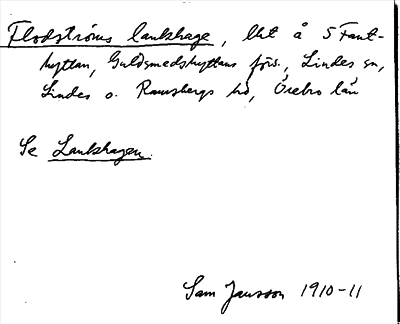 Flodströms lankhage, lht å 5 Fant-
hyttan, Guldsmedshyttans förs., Lindes sn,
Lindes o. Ramsbergs hd, Örebro län
Se Lankhagen.
Sam Jansson 1910-11